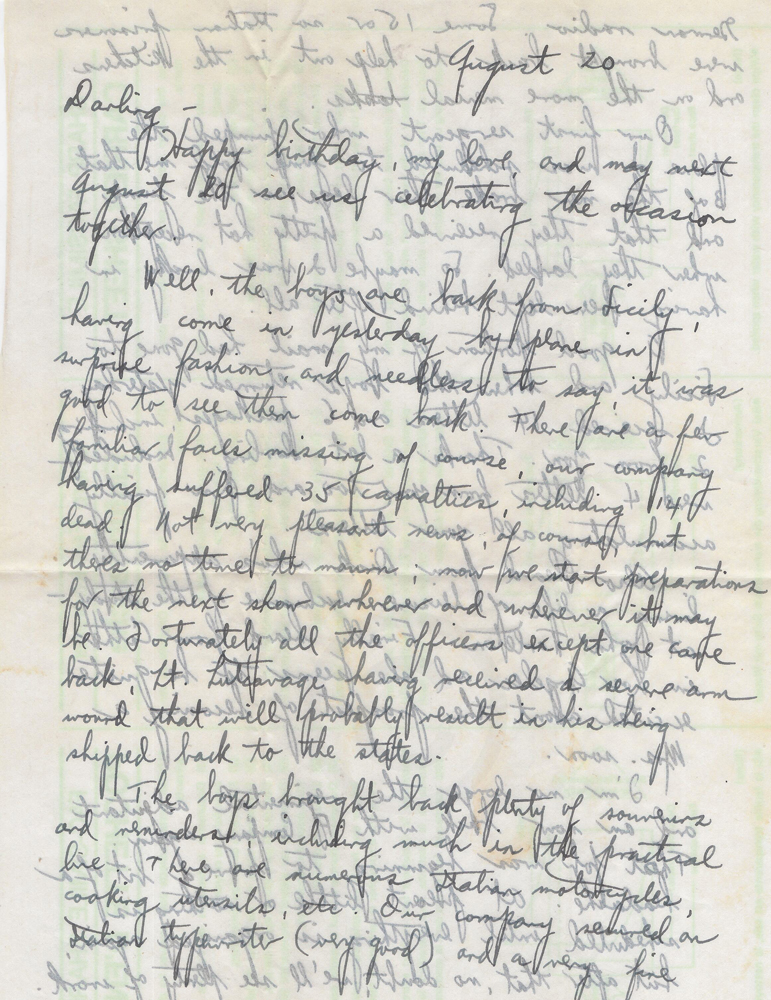 August 20
Darling -
Happy birthday, my love, and may next
August 20 see us celebrating the occasion
together.
Well, the boys are back from Sicily,
having come in yesterday by plane in
surprise fashion, and needless to say, it was
good to see them come back. There are a few
familiar faces missing of course, our company
having suffered 35 casualties, including 14
dead. Not very pleasant news, of course, but
there's no time to mourn; now we start preparations
for the next show wherever and whenever it may
be. Fortunately all the officers except one came
back, Lt. Lutcavage, having received a severe arm
wound that will probably result in his being
shipped back to the states.
The boys brought back plenty of souvenirs
and reminders, including much in the practical
line. There are numerous Italian motorcycles,
cooking utensils, etc. Our company secured an
Italian typewriter (very good) and a very fine